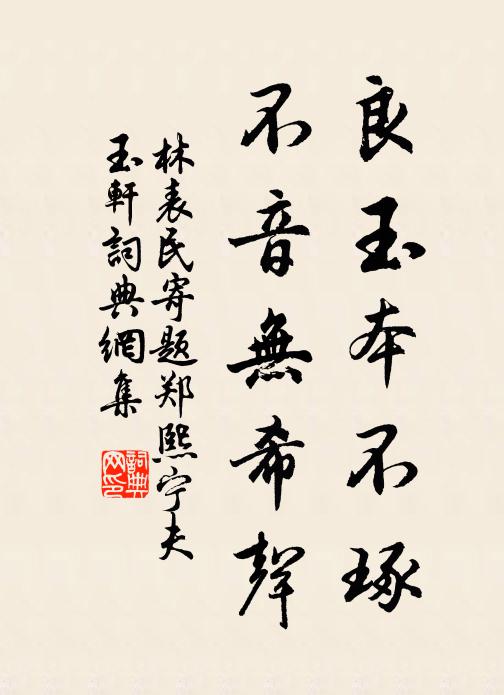 良玉本不琢
不音無希聲
林表民寄题郑熙宁夫
玉軒詞典網集
詞典网印